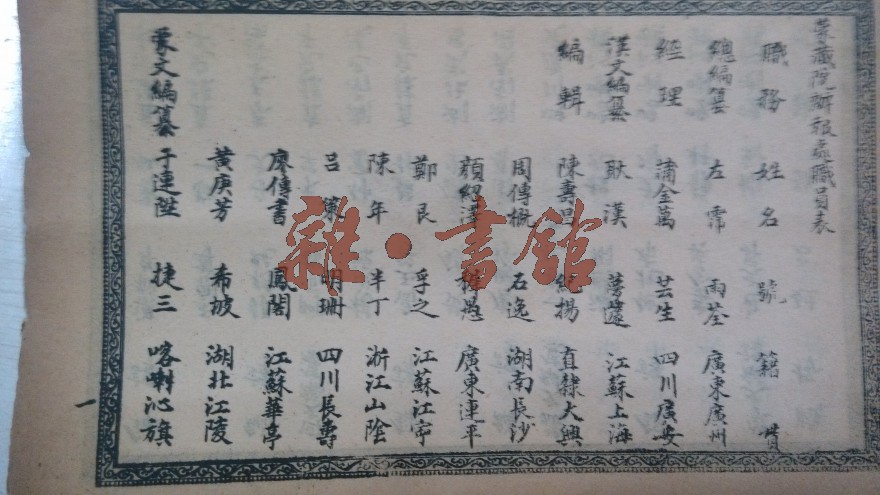 蒙藏院辦報處職員表
職務 姓名 號 籍貫
總編纂 左霈 雨荃 廣東廣州
經理 蒲金萬 芸生 四川廣安
漢文編纂 耿漢 江蘇上海
編輯 陳壽昌 純揚 直隸大興
周傳概 石逸 湖南長沙
顏紹澤 稺愚 廣東連平
鄭民 孚之 江蘇江寧
陳年 半丁 浙江山陰
呂策 明珊 四川長壽
廖傳書 鳳閣 江蘇華亭
黃庚芳 希坡 湖北江陵
蒙文編纂 于連陞 捷三 喀喇沁旗
一
雜·書館